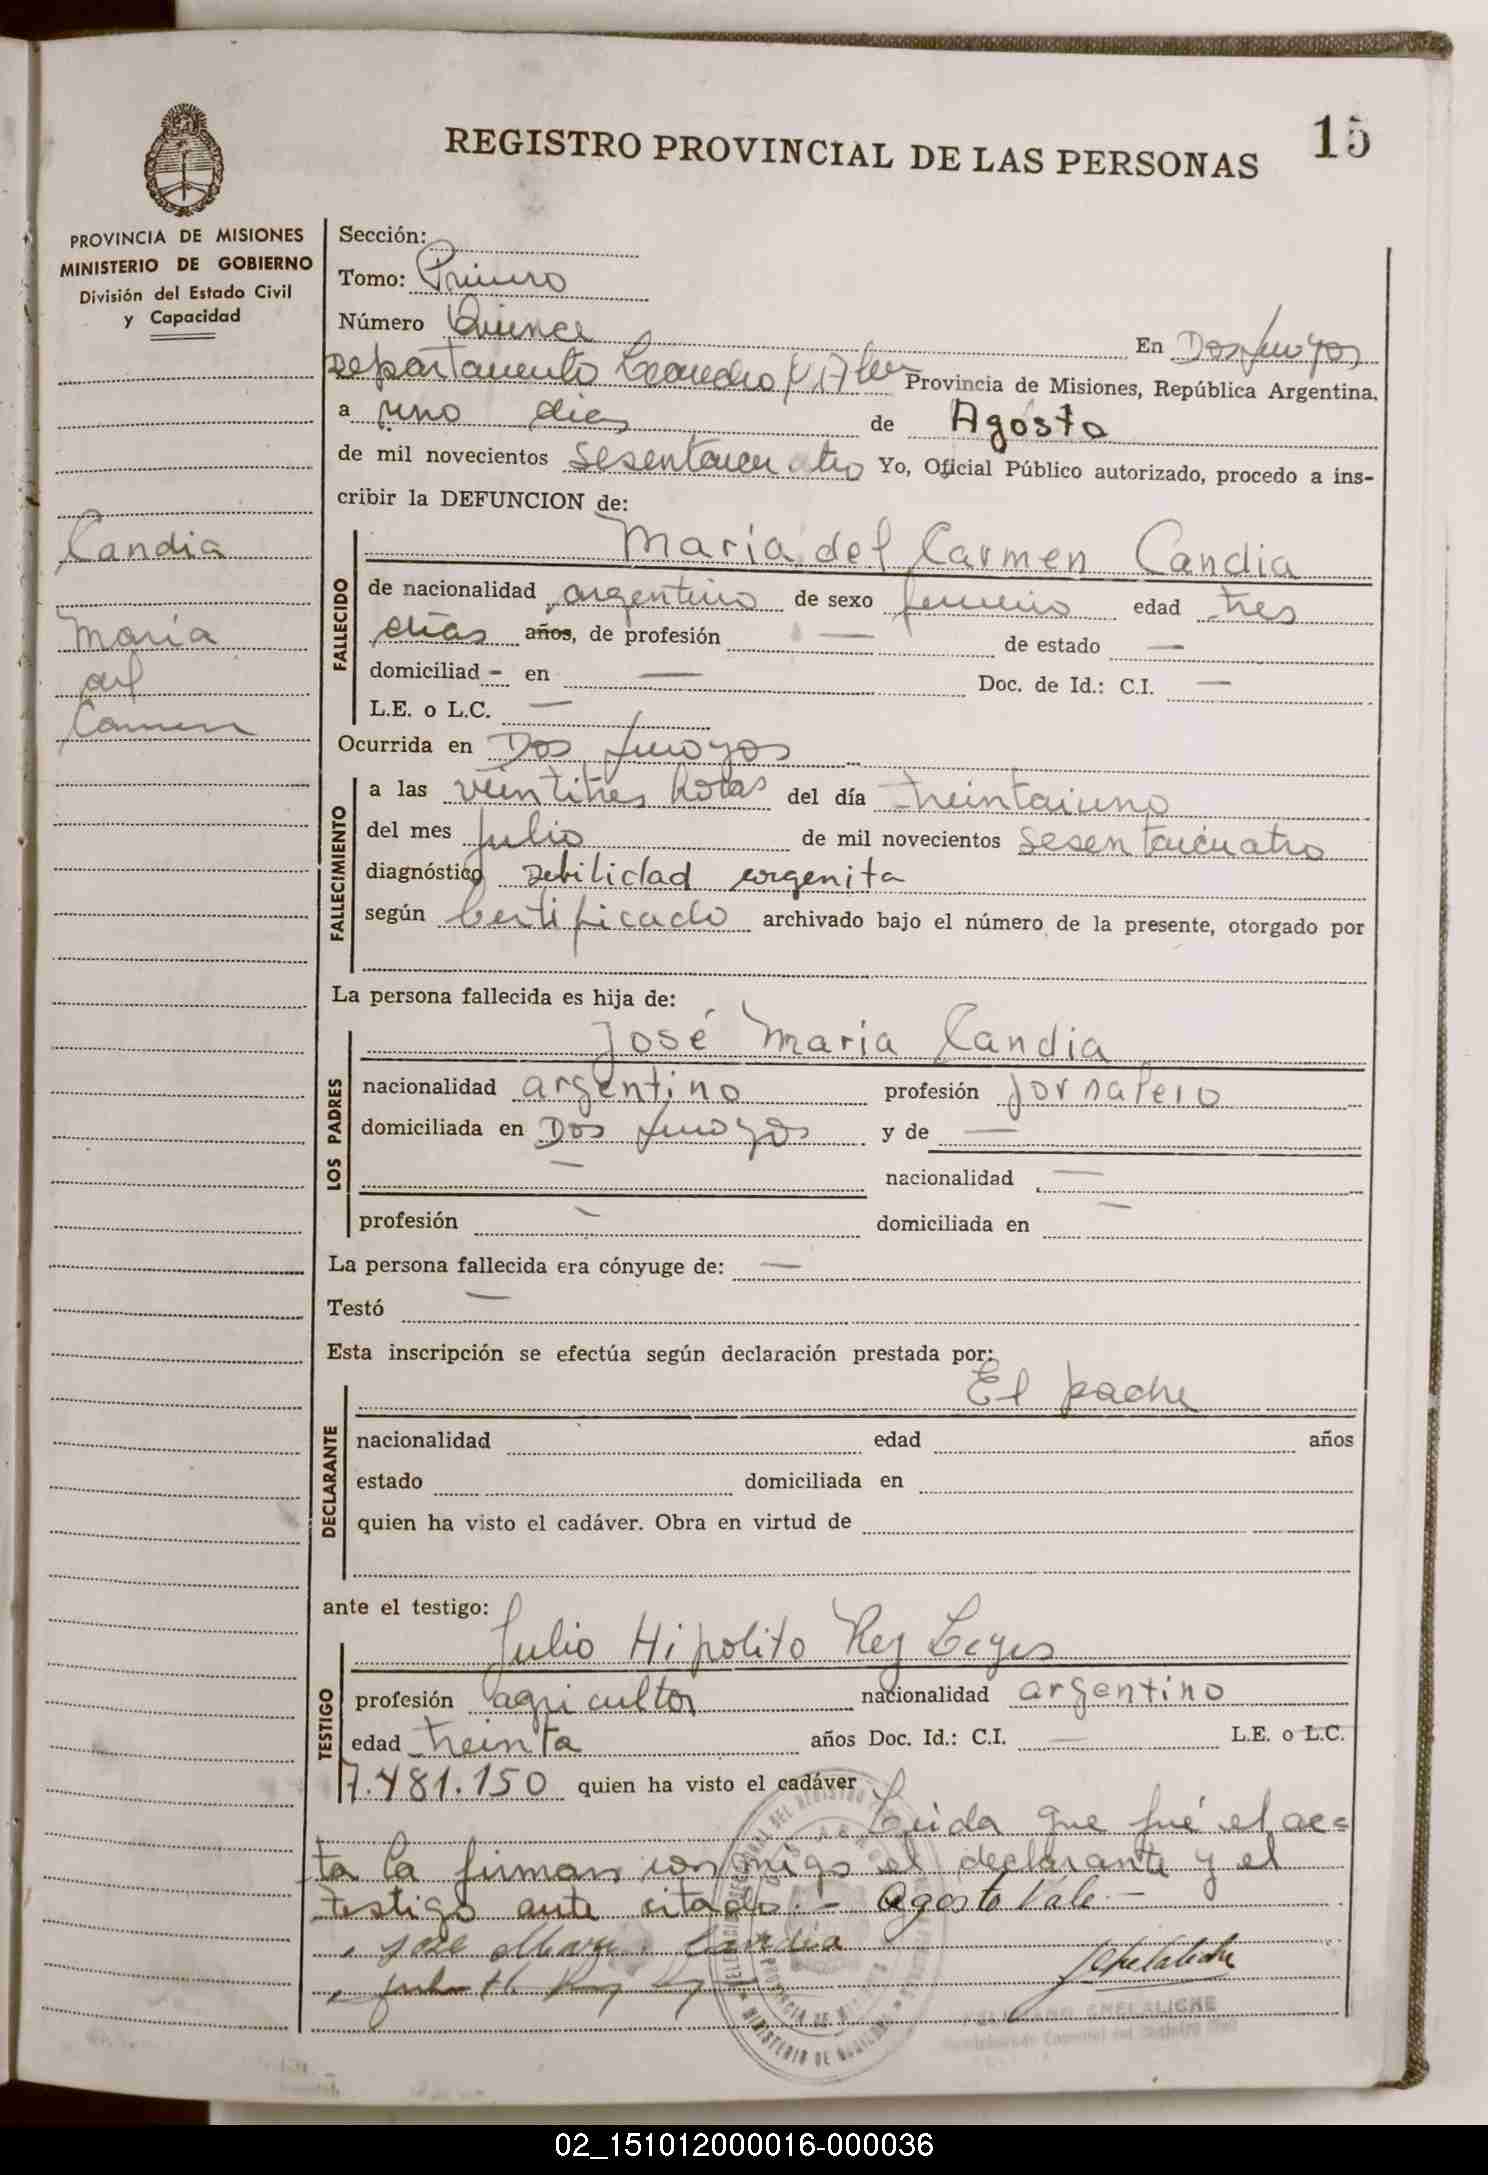 15
REGISTRO PROVINCIAL DE LAS PERSONAS
PROVINCIA DE MISIONES
MINISTERIO DE GOBIERNO
División del Estado Civil
y Capacidad
Candia
María
del
Carmen
Sección:
Tomo: Primero
Número Quince En Dos Arroyos
Departamento Leandro N. Alem Provincia de Misiones, República Argentina,
a uno dias de Agosto
de mil novecientos sesentaicuatro Yo, Oficial Público autorizado, procedo a ins-
cribir la DEFUNCION de:
María del Carmen Candia
FALLECIDO
de nacionalidad argentino de sexo femenino edad tres
días años, de profesión — de estado —
domiciliad - en — Doc. de Id.: C.I. —
L.E. o L.C. —
Ocurrida en Dos Arroyos
FALLECIMIENTO
a las veintitres horas del día treintaiuno
del mes Julio de mil novecientos sesentaicuatro
diagnóstico debilidad congenita
según Certificado archivado bajo el número de la presente, otorgado por
La persona fallecida es hija de:
José María Candia
LOS PADRES
nacionalidad argentino profesión jornalero
domiciliada en Dos Arroyos y de —
— nacionalidad —
profesión - domiciliada en —
La persona fallecida era cónyuge de: —
Testó —
Esta inscripción se efectúa según declaración prestada por:
El padre
DECLARANTE
nacionalidad edad años
estado domiciliada en
quien ha visto el cadáver. Obra en virtud de
ante el testigo:
Julio Hipolito Rey Leyes
TESTIGO
profesión agricultor nacionalidad argentino
edad treinta años Doc. Id.: C.I. — L.E. o L.C.
7.481.150 quien ha visto el cadáver
Leida que fué el ac=
ta la firman conmigo el declarante y el
testigo ante citado.- Agosto Vale.-
José María Candia
Julio H. Rey
CHELALICHE
MINISTERIO DE GOBIERNO
PROVINCIA DE MISIONES
02_151012000016-000036